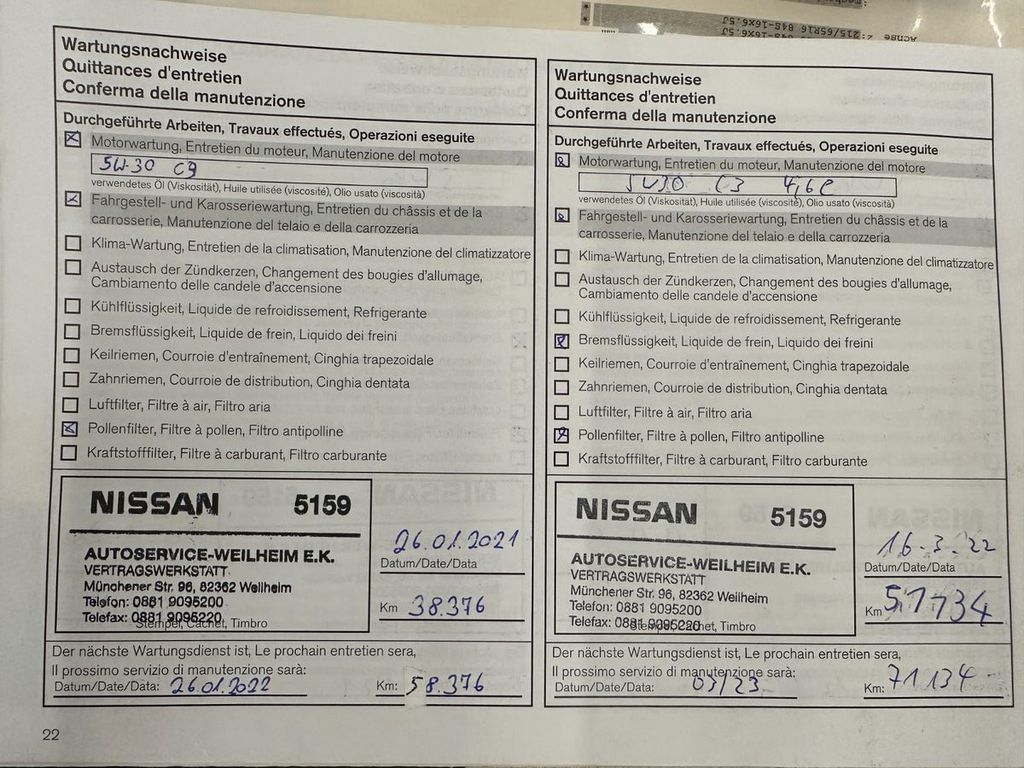 Wartungsnachweise
Quittances d'entretien
Conferma della manutenzione
Durchgeführte Arbeiten, Travaux effectués, Operazioni eseguite
Motorwartung, Entretien du moteur, Manutenzione del motore
5W-30 C3
verwendetes Öl (Viskosität), Huile utilisée (viscosité), Olio usato (viscosità)
Fahrgestell- und Karosseriewartung, Entretien du châssis et de la
carrosserie, Manutenzione del telaio e della carrozzeria
Klima-Wartung, Entretien de la climatisation, Manutenzione del climatizzatore
Austausch der Zündkerzen, Changement des bougies d'allumage,
Cambiamento delle candele d'accensione
Kühlflüssigkeit, Liquide de refroidissement, Refrigerante
Bremsflüssigkeit, Liquide de frein, Liquido dei freini
Keilriemen, Courroie d'entraînement, Cinghia trapezoidale
Zahnriemen, Courroie de distribution, Cinghia dentata
Luftfilter, Filtre à air, Filtro aria
Pollenfilter, Filtre à pollen, Filtro antipolline
Kraftstofffilter, Filtre à carburant, Filtro carburante
NISSAN 5159
AUTOSERVICE-WEILHEIM E.K.
VERTRAGSWERKSTATT
Münchener Str. 96, 82362 Weilheim
Telefon: 0881 9095200
Telefax: 0881 9095220
Stempel, Cachet, Timbro
26.01.2021
Datum/Date/Data
Km 38.376
Der nächste Wartungsdienst ist, Le prochain entretien sera,
Il prossimo servizio di manutenzione sarà:
Datum/Date/Data: 26.01.2022 Km: 58.376
22
Wartungsnachweise
Quittances d'entretien
Conferma della manutenzione
Durchgeführte Arbeiten, Travaux effectués, Operazioni eseguite
Motorwartung, Entretien du moteur, Manutenzione del motore
5W30 C3 4,6l
verwendetes Öl (Viskosität), Huile utilisée (viscosité), Olio usato (viscosità)
Fahrgestell- und Karosseriewartung, Entretien du châssis et de la
carrosserie, Manutenzione del telaio e della carrozzeria
Klima-Wartung, Entretien de la climatisation, Manutenzione del climatizzatore
Austausch der Zündkerzen, Changement des bougies d'allumage,
Cambiamento delle candele d'accensione
Kühlflüssigkeit, Liquide de refroidissement, Refrigerante
Bremsflüssigkeit, Liquide de frein, Liquido dei freini
Keilriemen, Courroie d'entraînement, Cinghia trapezoidale
Zahnriemen, Courroie de distribution, Cinghia dentata
Luftfilter, Filtre à air, Filtro aria
Pollenfilter, Filtre à pollen, Filtro antipolline
Kraftstofffilter, Filtre à carburant, Filtro carburante
NISSAN 5159
AUTOSERVICE-WEILHEIM E.K.
VERTRAGSWERKSTATT
Münchener Str. 96, 82362 Weilheim
Telefon: 0881 9095200
Telefax: 0881 9095220
Stempel, Cachet, Timbro
16.3.22
Datum/Date/Data
Km 51734
Der nächste Wartungsdienst ist, Le prochain entretien sera,
Il prossimo servizio di manutenzione sarà:
Datum/Date/Data: 03/23 Km: 71134